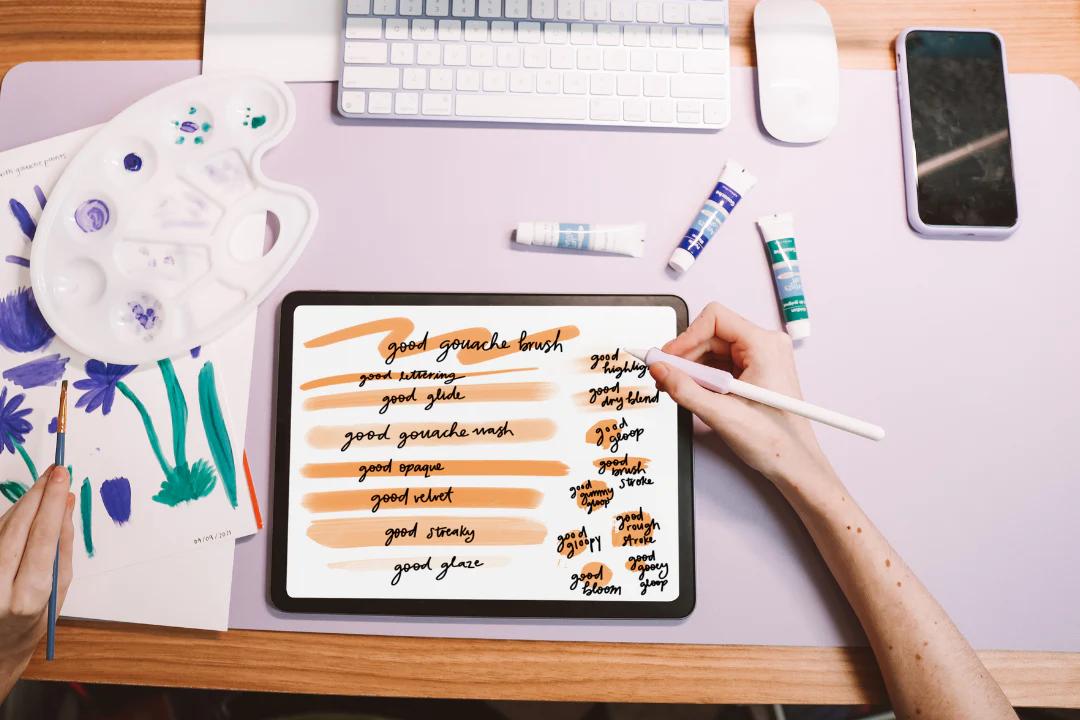 with gouache paints
09/09/2021
Gouache
good gouache brush
good lettering
good glide
good gouache wash
good opaque
good velvet
good streaky
good glaze
good
good
dry blend
good
gloop
good
brush
stroke
good
gummy
gloop
good
rough
stroke
good
gloopy
good
gooey
gloop
good
bloom